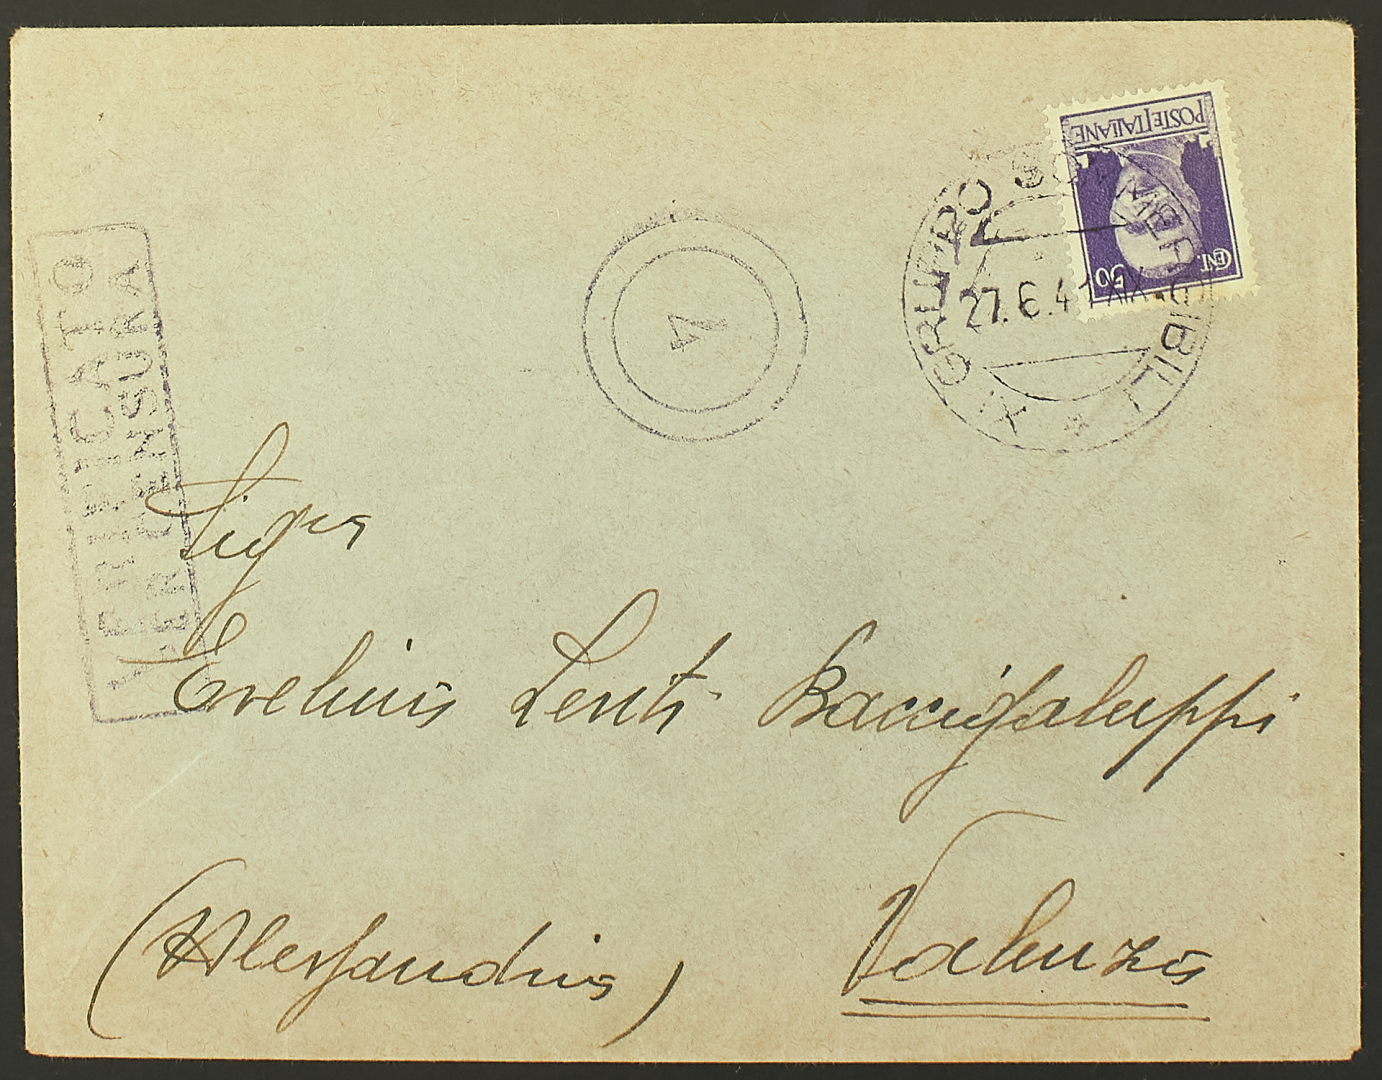 POSTE ITALIANE
CENT. 50
XI GRUPPO SOMMERGIBILI
27.6.41 XIX
4
VERIFICATO
PER CENSURA
Sig.ra
Evelina Lenti Baccigaluppi
Valenza
(Alessandria)